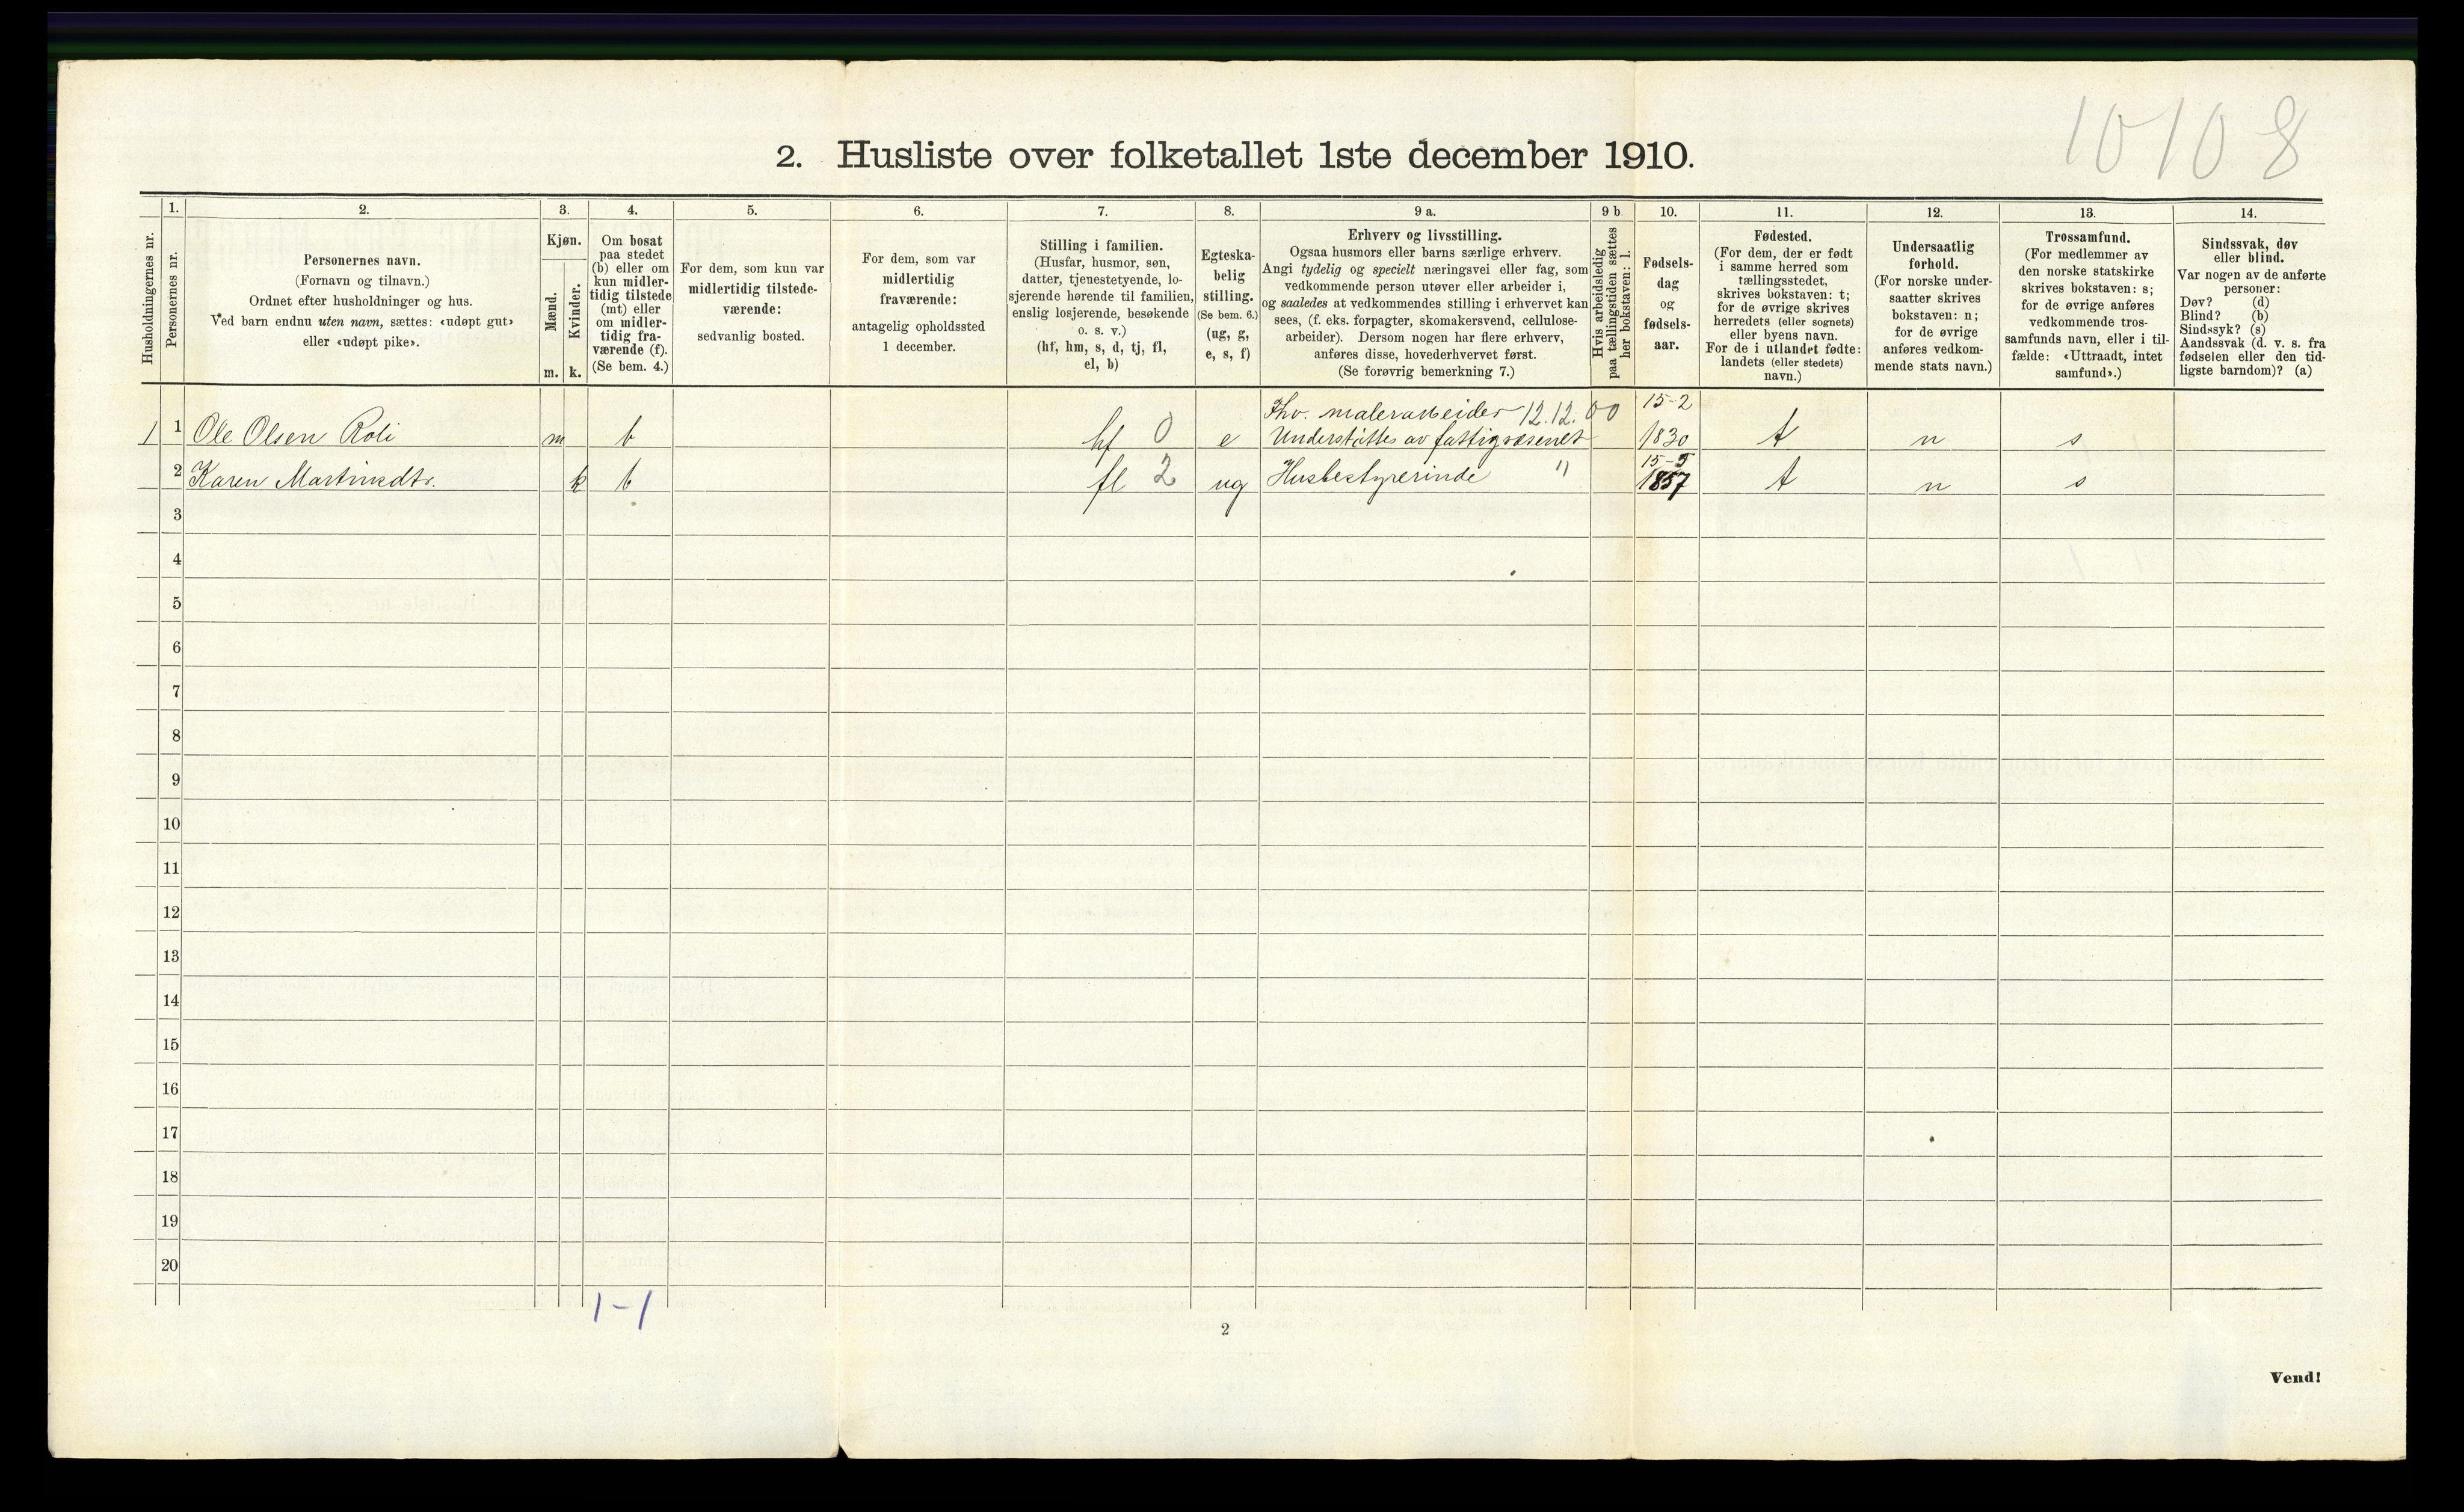 10108
2. Husliste over folketallet 1ste december 1910.
Husholdningernes nr.
1.
Personernes nr.
2.
Personernes navn.
(Fornavn og tilnavn.)
Ordnet efter husholdninger og hus.
Ved barn endnu uten navn, sættes: «udøpt gut»
eller «udøpt pike».
3.
Kjøn.
Mænd.
Kvinder.
m.
k.
4.
Om bosat
paa stedet
(b) eller om
kun midler-
tidig tilstede
(mt) eller
om midler-
tidig fra-
værende (f).
(Se bem. 4.)
5.
For dem, som kun var
midlertidig tilstede-
værende:
sedvanlig bosted.
6.
For dem, som var
midlertidig
fraværende:
antagelig opholdssted
1 december.
7.
Stilling i familien.
(Husfar, husmor, søn,
datter, tjenestetyende, lo-
sjerende hørende til familien,
enslig losjerende, besøkende
o. s. v.)
(hf, hm, s, d, tj, fl,
el, b)
8.
Egteska-
belig
stilling.
(Se bem. 6.)
(ug, g,
e, s, f)
9 a.
Erhverv og livsstilling.
Ogsaa husmors eller barns særlige erhverv.
Angi tydelig og specielt næringsvei eller fag, som
vedkommende person utøver eller arbeider i,
og saaledes at vedkommendes stilling i erhvervet kan
sees, (f. eks. forpagter, skomakersvend, cellulose-
arbeider). Dersom nogen har flere erhverv,
anføres disse, hovederhvervet først.
(Se forøvrig bemerkning 7.)
9 b
Hvis arbeidsledig
paa tællingstiden sættes
her bokstaven: l.
10.
Fødsels-
dag
og
fødsels-
aar.
11.
Fødested.
(For dem, der er født
i samme herred som
tællingsstedet,
skrives bokstaven: t;
for de øvrige skrives
herredets (eller sognets)
eller byens navn.
For de i utlandet fødte:
landets (eller stedets)
navn.)
12.
Undersaatlig
forhold.
(For norske under-
saatter skrives
bokstaven: n;
for de øvrige
anføres vedkom-
mende stats navn.)
13.
Trossamfund.
(For medlemmer av
den norske statskirke
skrives bokstaven: s;
for de øvrige anføres
vedkommende tros-
samfunds navn, eller i til-
fælde: «Uttraadt, intet
samfund».)
14.
Sindssvak, døv
eller blind.
Var nogen av de anførte
personer:
Døv? (d)
Blind? (b)
Sindssyk? (s)
Aandssvak (d. v. s. fra
fødselen eller den tid-
ligste barndom)? (a)
Fhv. malerarbeider 12.12.00 15-2
1 1 Ole Olsen Roli m b hf 0 e Understøttes av fattigvæsenet 1830 t n s
15-5
2 Karen Martinsdtr. k b fl 2 ug Husbestyrerinde " 1857 t n s
3
4
5
6
7
8
9
10
11
12
13
14
15
16
17
18
19
20
1-1
2
Vend!